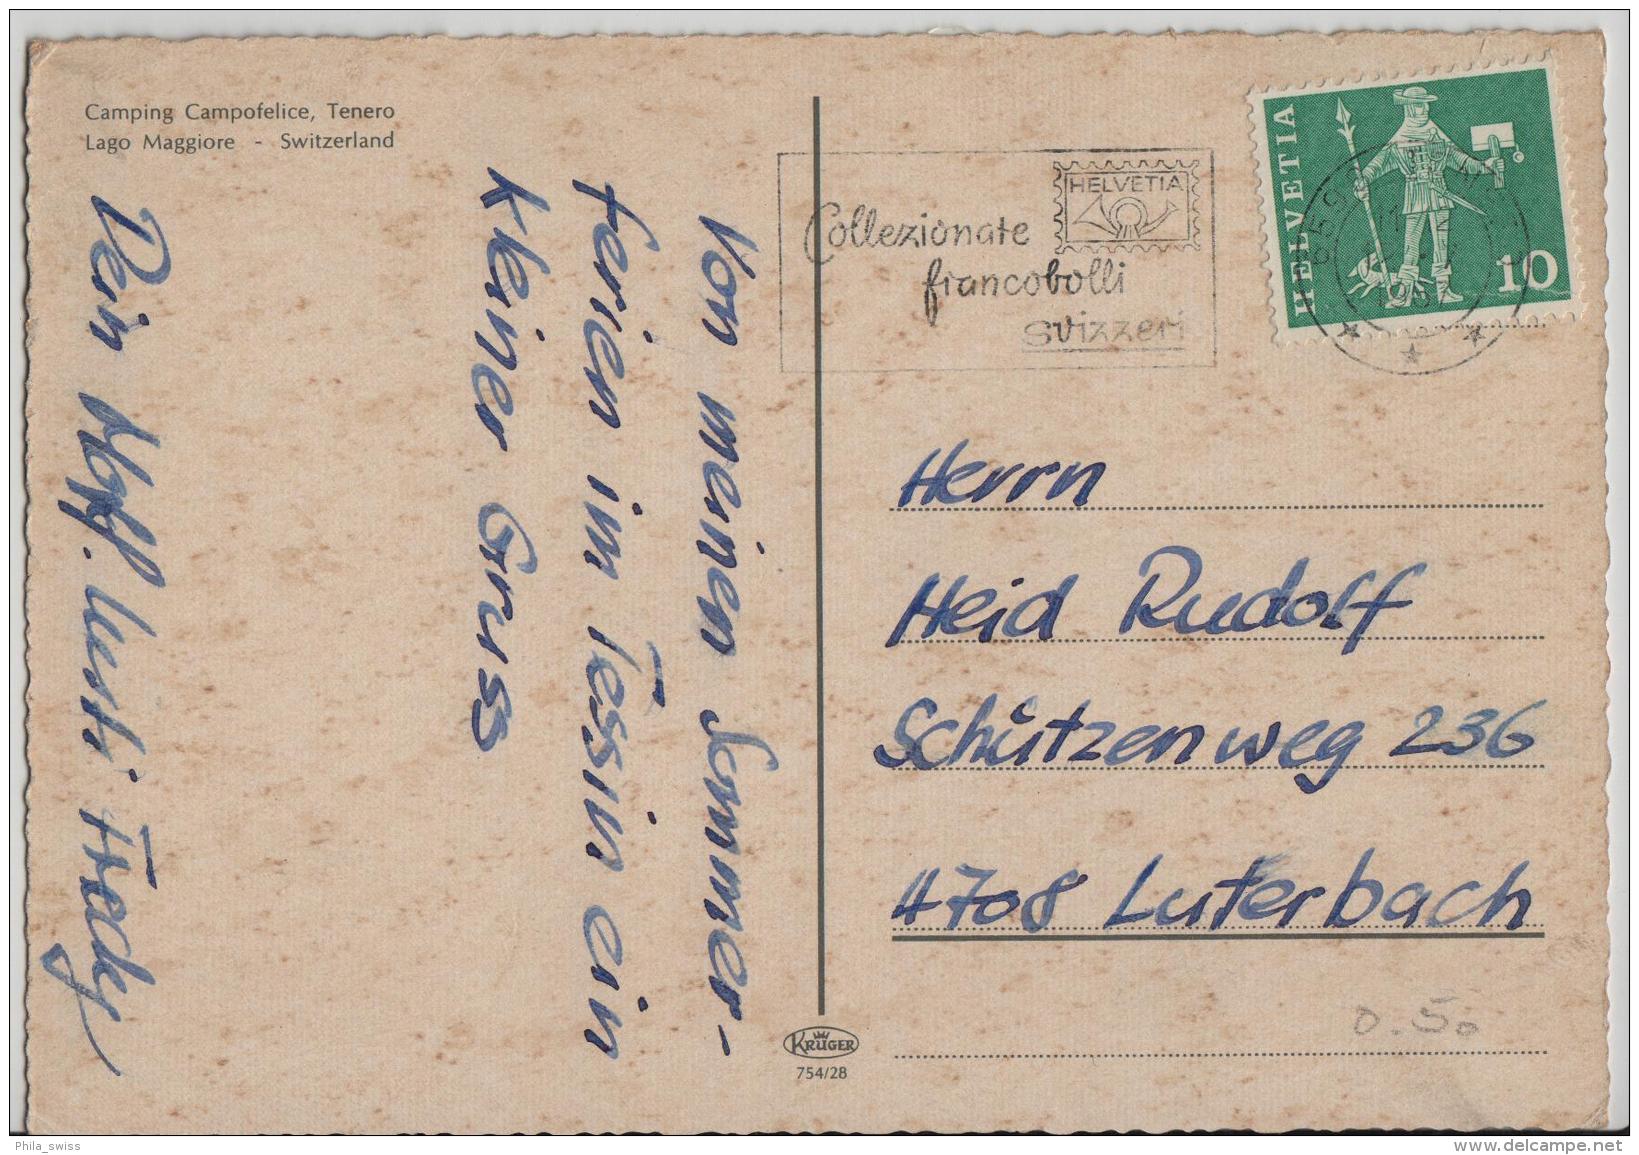 Camping Campofelice, Tenero
Lago Maggiore - Switzerland
Von meinen Sommer-
ferien im Tessin ein
kleiner Gruss
Dein
HELVETIA
Collezionate
francobolli
svizzeri
HELVETIA
10
Herrn
Heid Rudolf
Schützenweg 236
4708 Luterbach
0.50
KRÜGER
754/28
Phila_swiss
delcampe.net